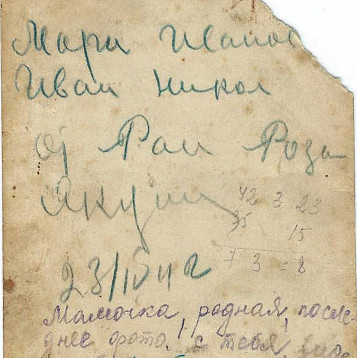 Мари Ивано
Иван Никол
от Раи Роза
Якуш
42 3 23
35 15
7 3 - 8
23/IV 42
Мамочка, родная, после-
днее фото, с тебя